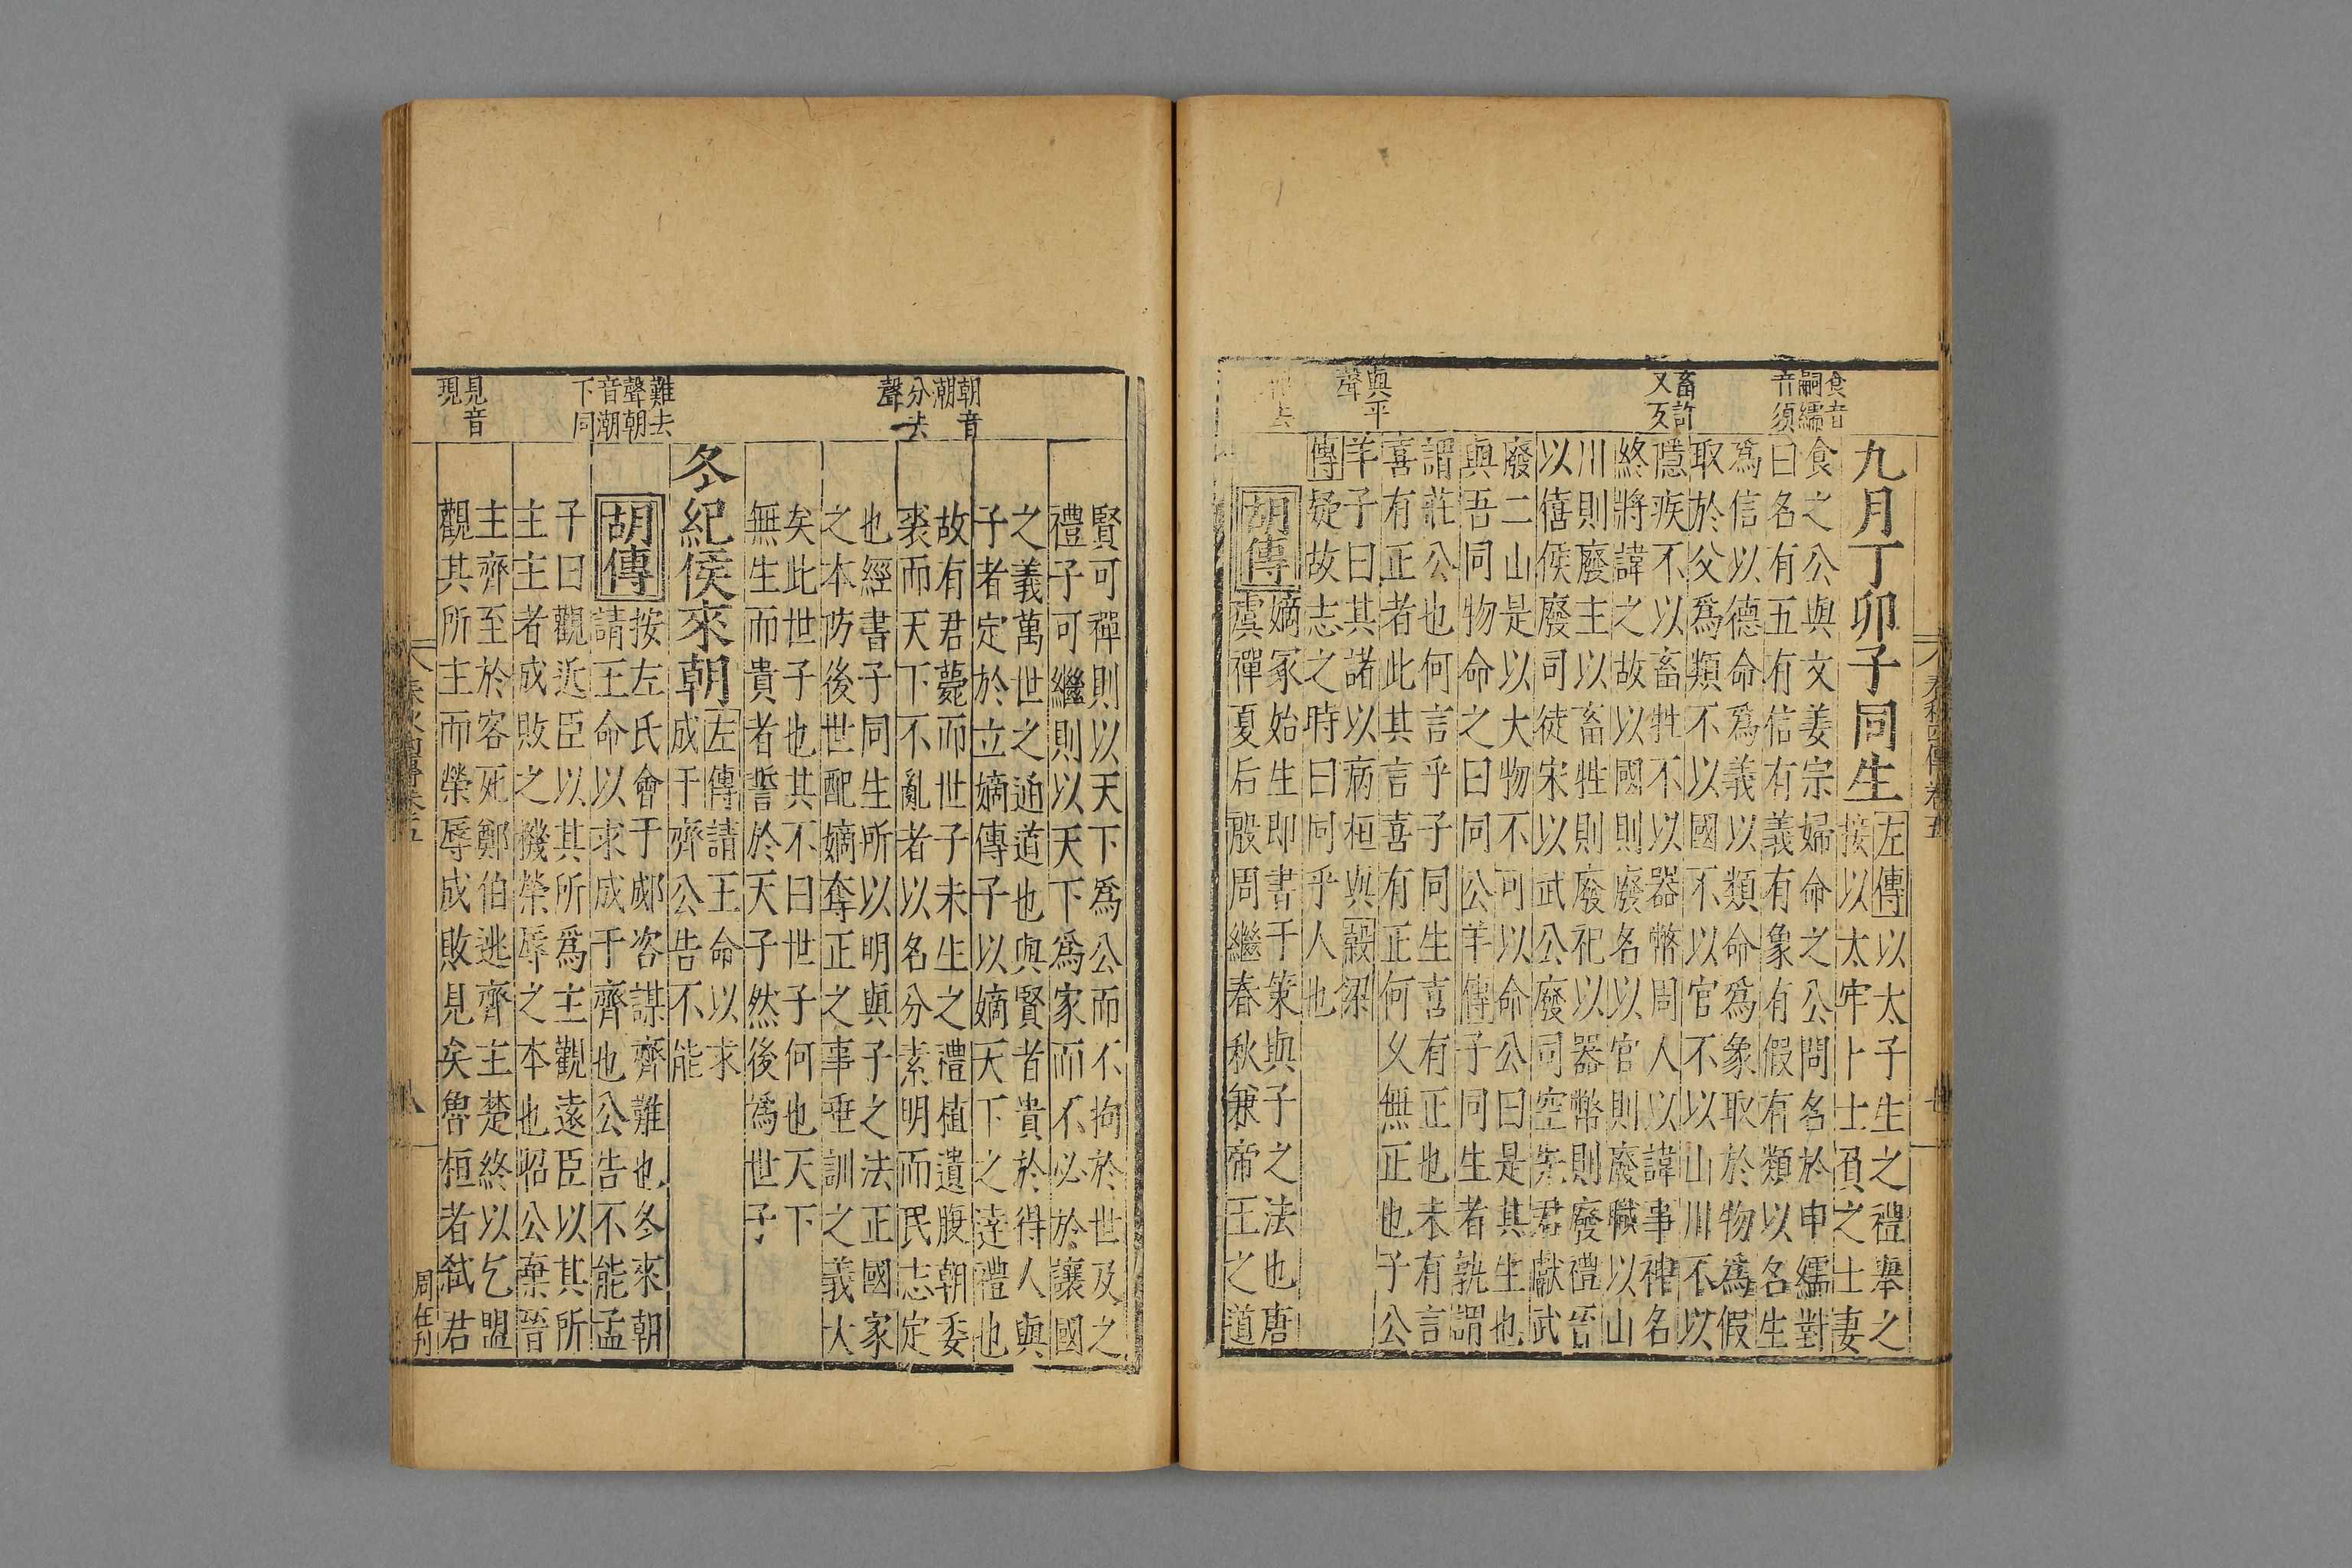 食音
嗣繻
音須
畜許
又反
與平
聲
九月丁卯子同生
左傳以太子生之禮舉之
接以太牢卜士負之士妻
食之公與文姜宗婦命之公問名於申繻對
曰名有五有信有義有象有假有類以名生
爲信以德命爲義以類命爲象取於物爲假
取於父爲類不以國不以官不以山川不以
隱疾不以畜牲不以器幣周人以諱事神名
終將諱之故以國則廢名以官則廢職以山
川則廢主以畜牲則廢祀以器幣則廢禮晉
以僖侯廢司徒宋以武公廢司空先君獻武
廢二山是以大物不可以命公曰是其生也
與吾同物命之曰同公羊傳子同生者孰謂
謂莊公也何言乎子同生喜有正也未有言
喜有正者此其言喜有正何久無正也子公
羊子曰其諸以病桓與穀梁
傳疑故志之時曰同乎人也
胡傳
嫡冢始生即書于策與子之法也唐
虞禪夏后殷周繼春秋兼帝王之道
春秋四傳卷五
朝音
潮
分去
聲
難去
聲朝
音潮
下同
見音
現
賢可禪則以天下爲公而不拘於世及之
禮子可繼則以天下爲家而不必於讓國
之義萬世之通道也與賢者貴於得人與
子者定於立嫡傳子以嫡天下之達禮也
故有君薨而世子未生之禮植遺腹朝委
裘而天下不亂者以名分素明而民志定
也經書子同生所以明與子之法正國家
之本防後世配嫡奪正之事垂訓之義大
矣此世子也其不曰世子何也天下
無生而貴者誓於天子然後爲世子
冬紀侯來朝
左傳請王命以求
成于齊公告不能
胡傳
按左氏會于郕咨謀齊難也冬來朝
請王命以求成于齊也公告不能孟
子曰觀近臣以其所爲主觀遠臣以其所
主主者成敗之機榮辱之本也昭公棄晉
主齊至於客死鄭伯逃齊主楚終以乞盟
觀其所主而榮辱成敗見矣魯桓者弒君
八